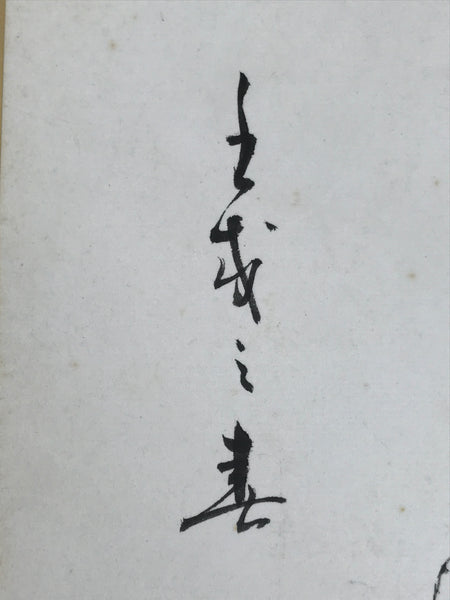 壬戌之春